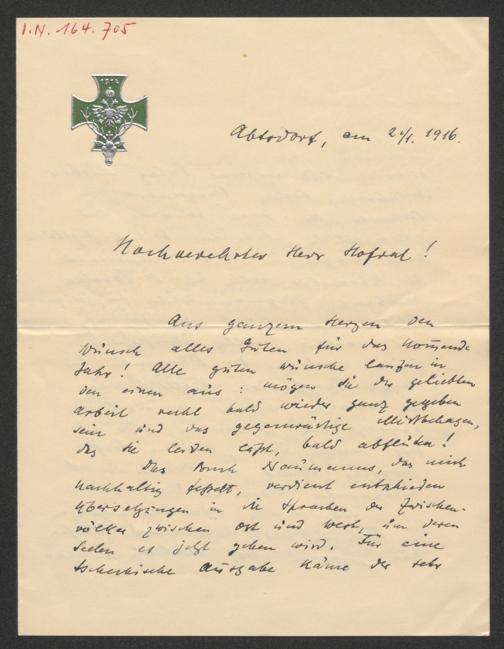 I.N. 164.705
Abtsdorf, am 2/1. 1916.
Hochverehrter Herr Hofrat!
Aus ganzem Herzen den
Wunsch alles Guten für das kommende
Jahr! Alle guten Wünsche laufen in
den einen aus: mögen Sie der geliebten
Arbeit recht bald wieder ganz gegeben
sein und das gegenwärtige Missbehagen,
das Sie leiden läßt, bald abflauen!
Das Buch Naumanns, das mich
nachhaltig fesselt, verdient entschieden
Übersetzungen in die Sprachen der Zwischen-
völker zwischen Ost und West, um deren
Seelen es jetzt gehen wird. Für eine
tschechische Ausgabe käme der sehr